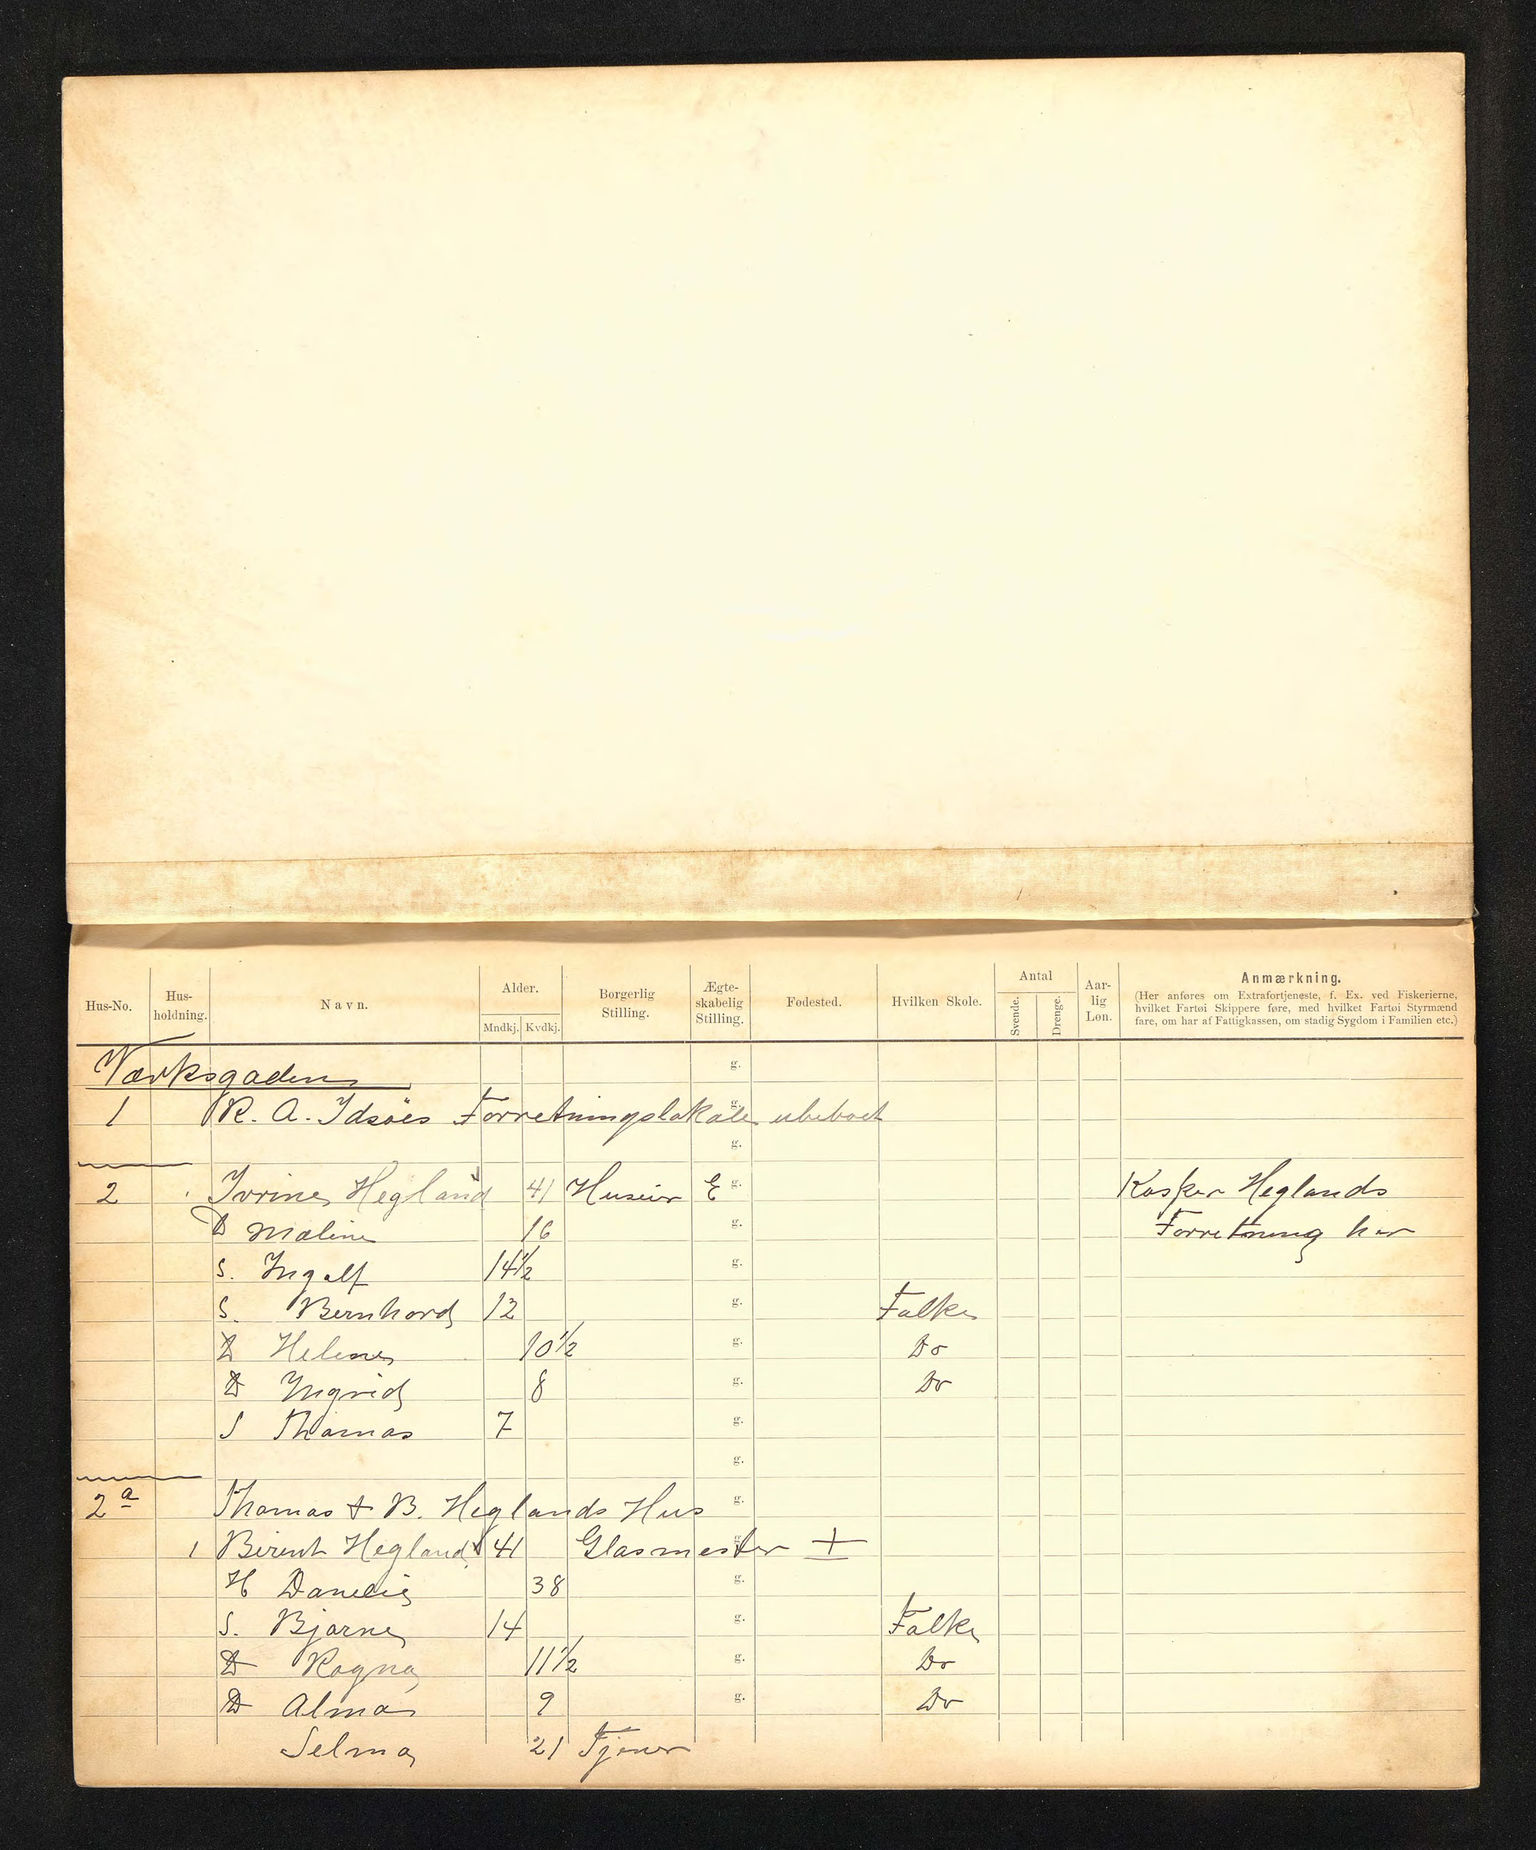 Hus-No. Hus-holdning. Navn. Alder. Mndkj. Kvdkj. Borgerlig Stilling. Ægte-skabelig Stilling. Fødested. Hvilken Skole. Antal Svende. Drenge. Aar-lig Løn. Anmærkning.
(Her anføres om Extrafortjeneste, f. Ex. ved Fiskerierne,
hvilket Fartøi Skippere føre, med hvilket Fartøi Styrmænd
fare, om har af Fattigkassen, om stadig Sygdom i Familien etc.)
Værksgaden g.
1 R. A. Idsøes Forretningslokale ubeboet g.
g.
2 Ivrine Hegland 41 Huseier E g. Kasper Heglands
D Maline 16 g. Forretning her
S. Ingolf 14 1/2 g.
S. Bernhard 12 g. Folke
D Helene 10 1/2 g. Do
D Ingrid 8 g. Do
S Thomas 7 g.
g.
2 a Thomas & B. Heglands Hus g.
1 Berent Hegland 41 Glasmester + g.
H Danelie 38 g.
S. Bjarne 14 g. Folke
D Ragna 11 1/2 g. Do
D Alma 9 g. Do
Selma 21 Tjener